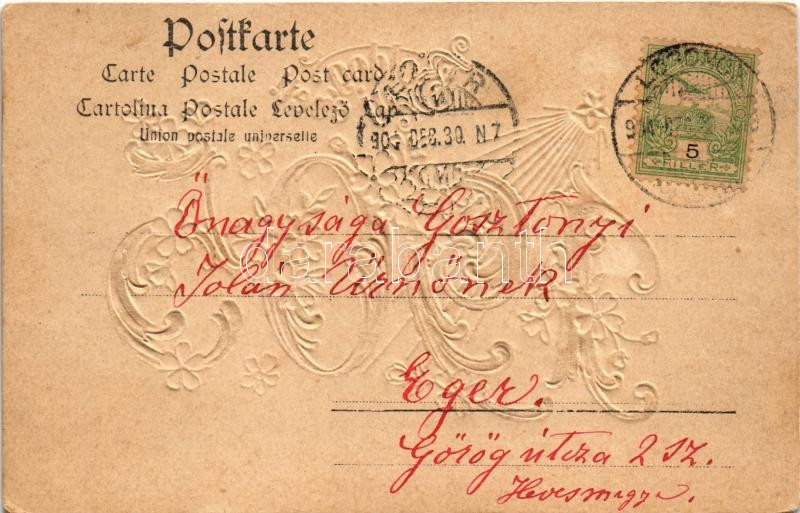 Postkarte
Carte Postale Post card
Cartolina Postale Levelező Lap
Union postale universelle
904 DEC. 30. N.7
5
FILLER
Őnagysága Gosztonyi
Jolán Úrnőnek
Eger.
Görög útcza 2 sz.
Hevesmegye.
darabanth